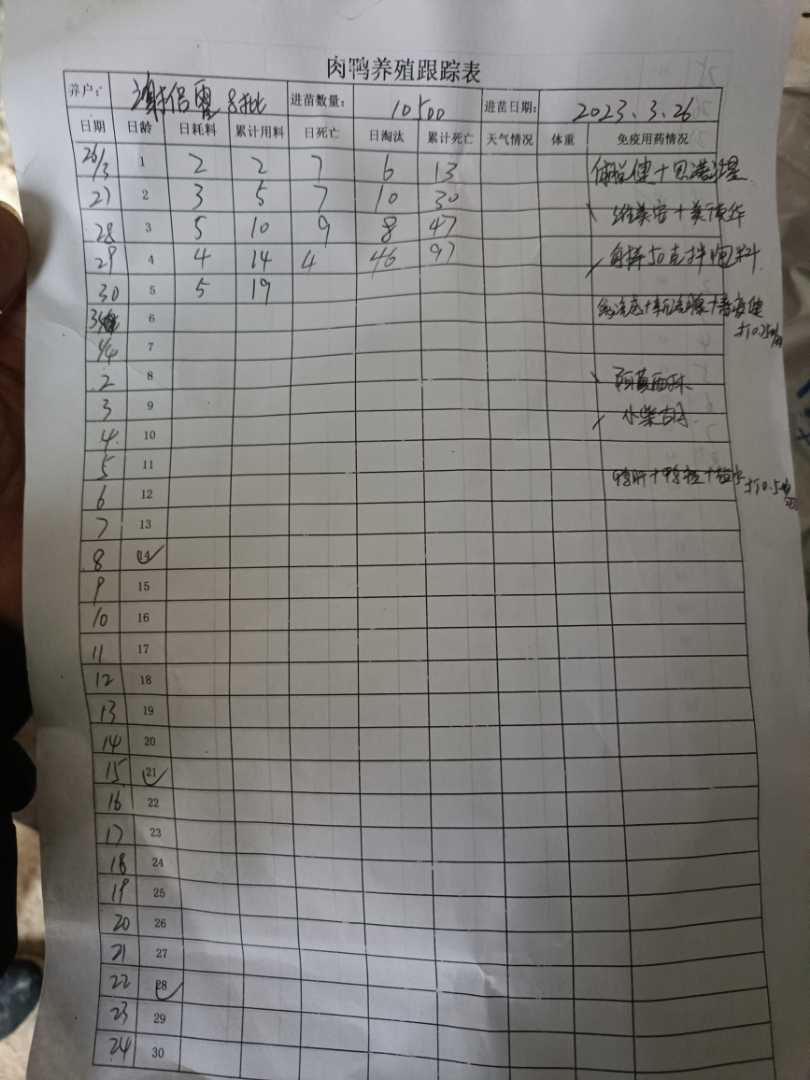 肉鸭养殖跟踪表
养户: 谢侣 8批 进苗数量: 10500 进苗日期: 2023.3.26
日期 日龄 日耗料 累计用料 日死亡 日淘汰 累计死亡 天气情况 体重 免疫用药情况
26/3 1 2 2 7 6 13 健+
27 2 3 5 7 10 30 +
28 3 5 10 9 8 47
29 4 4 14 4 46 97 50克拌 料
30 5 5 19
6 + + 打0.25
1/4 7
2 8 阿莫西林
3 9 小柴胡
4 10
5 11 鸭肝+ + 打0.5
6 12
7 13
8 14
9 15
10 16
11 17
12 18
13 19
14 20
15 21
16 22
17 23
18 24
19 25
20 26
21 27
22 28
23 29
24 30